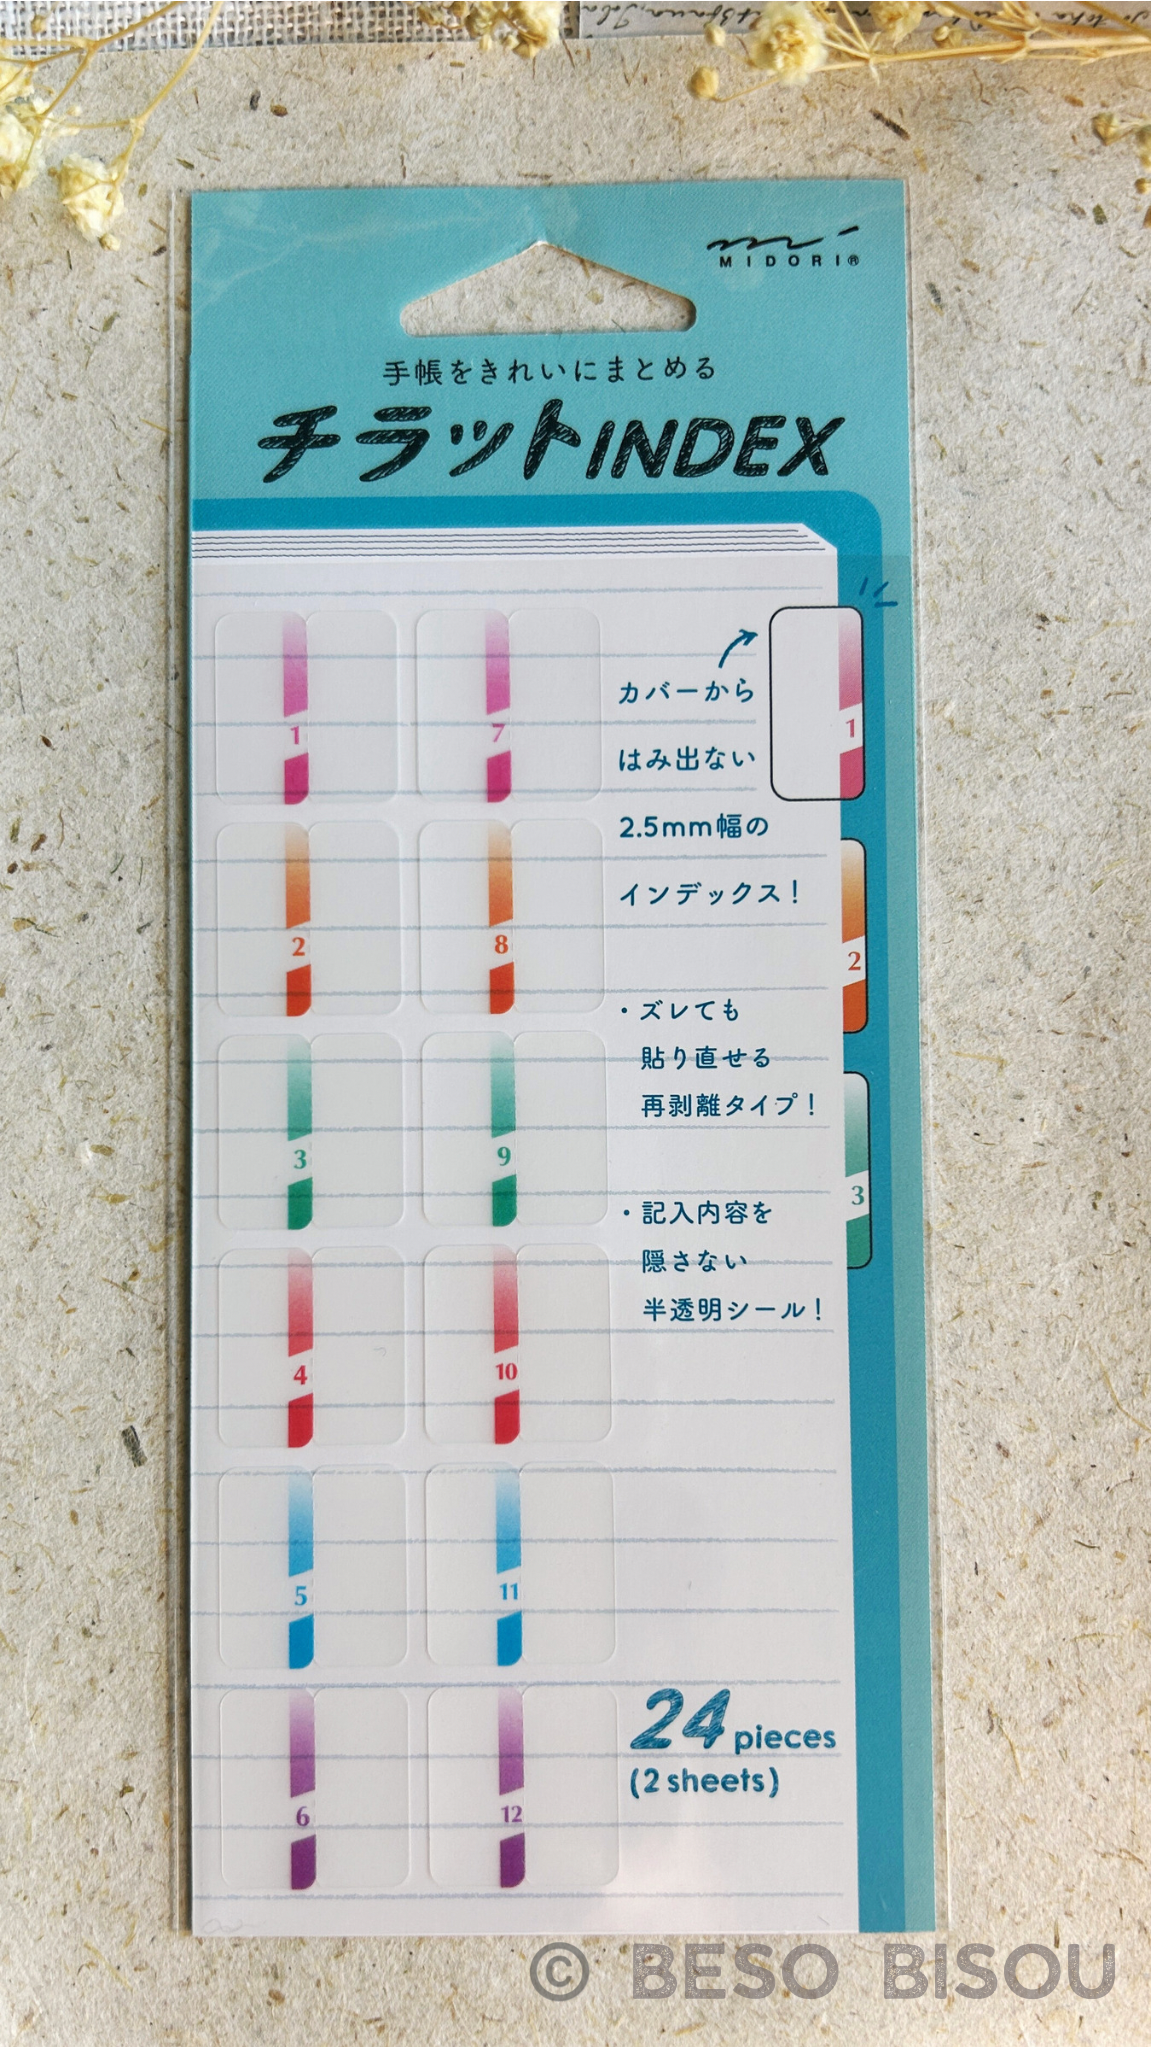 MIDORI®
手帳をきれいにまとめる
チラットINDEX
1
7
1
カバーから
はみ出ない
2.5mm幅の
インデックス！
2
8
2
・ズレても
貼り直せる
再剥離タイプ！
3
9
3
・記入内容を
隠さない
半透明シール！
4
10
5
11
6
12
24 pieces
(2 sheets)
© BESO BISOU